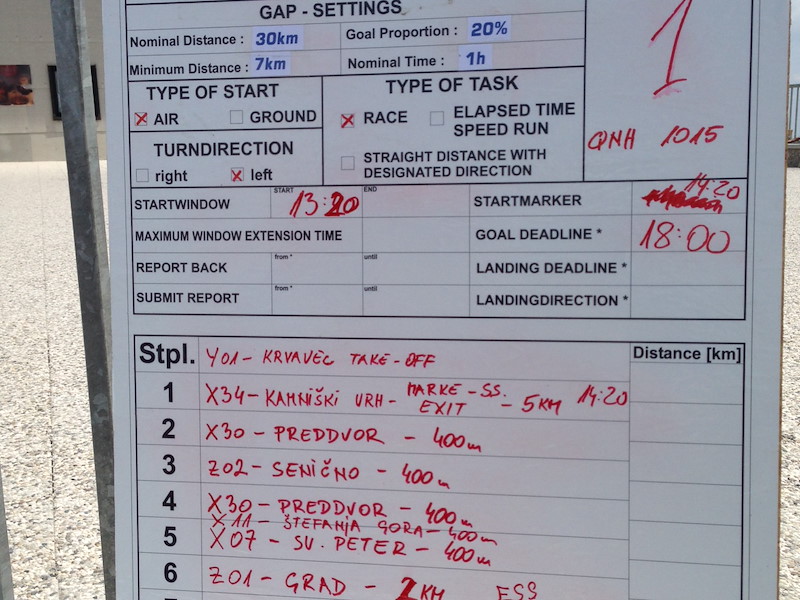 GAP - SETTINGS
Nominal Distance : 30km Goal Proportion : 20%
Minimum Distance : 7km Nominal Time : 1h
1
TYPE OF START TYPE OF TASK
☒ AIR ☐ GROUND ☒ RACE ☐ ELAPSED TIME SPEED RUN
QNH 1015
TURNDIRECTION ☐ STRAIGHT DISTANCE WITH DESIGNATED DIRECTION
☐ right ☒ left
STARTWINDOW START 13:20 END STARTMARKER 14:20
MAXIMUM WINDOW EXTENSION TIME GOAL DEADLINE * 18:00
REPORT BACK from * until LANDING DEADLINE *
SUBMIT REPORT from * until LANDINGDIRECTION *
Stpl. Y01 - KRVAVEC TAKE-OFF Distance [km]
1 X34 - KAMNIŠKI VRH - MARKE - SS. EXIT - 5KM 14:20
2 X30 - PREDDVOR - 400m
3 Z02 - SENIČNO - 400m
4 X30 - PREDDVOR - 400m
X11 - ŠTEFANJA GORA - 400m
5 X07 - SV. PETER - 400m
6 Z01 - GRAD - 2KM ESS